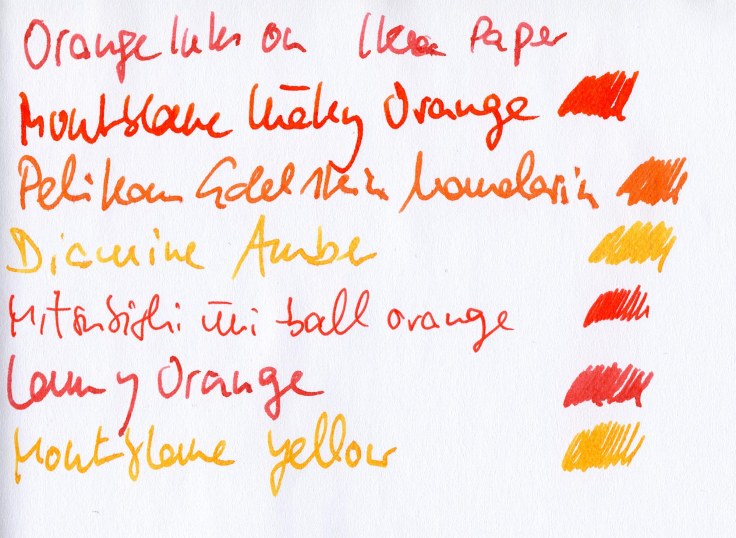 Orange Inks on Ikea Paper
Montblanc lūcky Orange
Pelikan Edelstein Mandarin
Diamine Amber
Mitsubishi ūni ball orange
Lamy Orange
Montblanc yellow